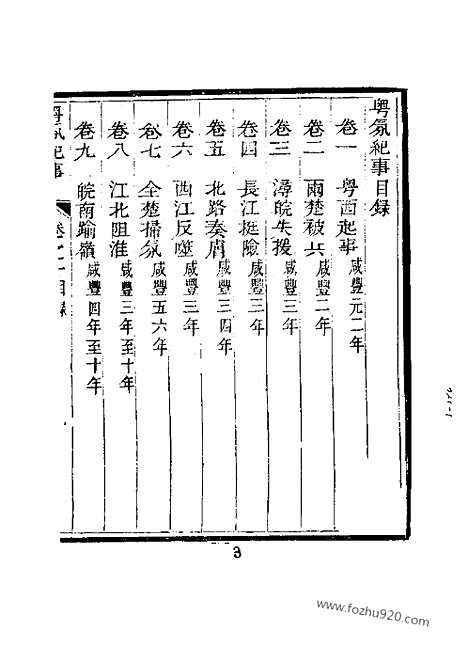 粤氛紀事目録
卷一　粤西起事咸豐元二年
卷二　兩楚被兵咸豐二年
卷三　潯皖失援咸豐三年
卷四　長江挺險咸豐三年
卷五　北路奏膚咸豐三四年
卷六　西江反噬咸豐三年
卷七　全楚掃氛咸豐五六年
卷八　江北阻淮咸豐三年至十年
卷九　皖南踰嶺咸豐四年至十年
粤氛紀事　目録
3
www.fozhu920.com